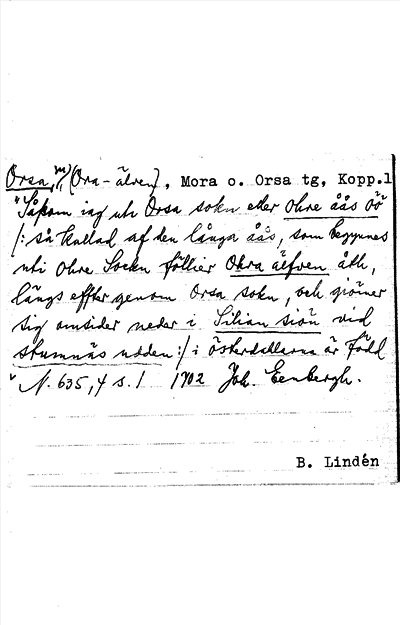 Orsa, m, (Ora-älven), Mora o. Orsa tg, Kopp.l
"Såsom iag uti Orsa sokn eller Ohre åås öö
/: så kallad af den långa åås, som begynnes
uti Ohre Sockn föllier Ohra älfven åth,
längs effter genom Orsa sokn, och giömer
sig omsider neder i Silian siön vid
stumnäs udden :/ i österdallarna är född
" N. 635,4 s. 1 1702 Joh. Eenbergh.
B. Lindén